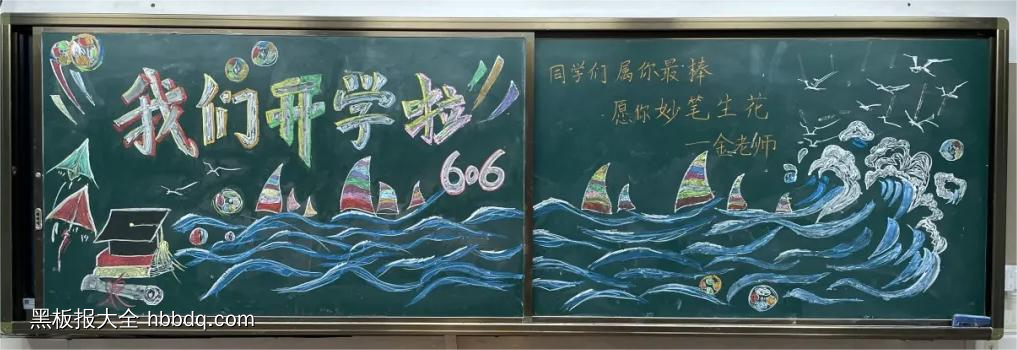 我们开学啦
606
同学们属你最捧
愿你妙笔生花
—金老师
黑板报大全 hbbdq.com